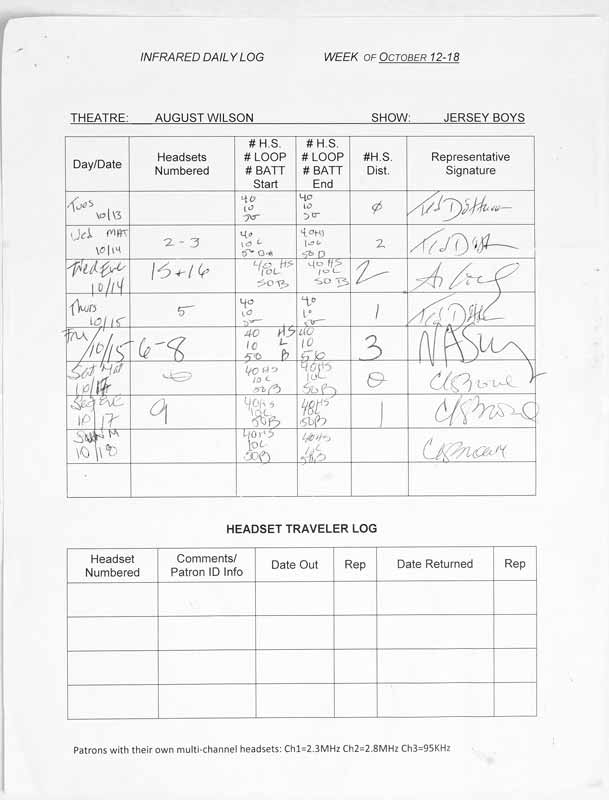 INFRARED DAILY LOG WEEK OF OCTOBER 12-18
THEATRE: AUGUST WILSON SHOW: JERSEY BOYS
Day/Date Headsets Numbered # H.S. # LOOP # BATT Start # H.S. # LOOP # BATT End #H.S. Dist. Representative Signature
Tues 10/13 40 10 50 40 10 50 0
Wed MAT 10/14 2-3 40 10L 50 40HS 10L 50 2
Wed Eve 10/14 15+16 40 HS 10L 50B 40 HS 10L 50B 2
Thurs 10/15 5 40 10 50 40 10 50 1
Fri 10/15 6-8 40 HS 10 L 50 B 40 10 50 3
Sat Mat 10/17 0 40HS 10L 50B 40HS 10L 50B 0
Sat Eve 10/17 9 40HS 10L 50B 40HS 10L 50B 1
Sun M 10/18 40HS 10L 50B 40HS 10L 50B
HEADSET TRAVELER LOG
Headset Numbered Comments/ Patron ID Info Date Out Rep Date Returned Rep
Patrons with their own multi-channel headsets: Ch1=2.3MHz Ch2=2.8MHz Ch3=95KHz